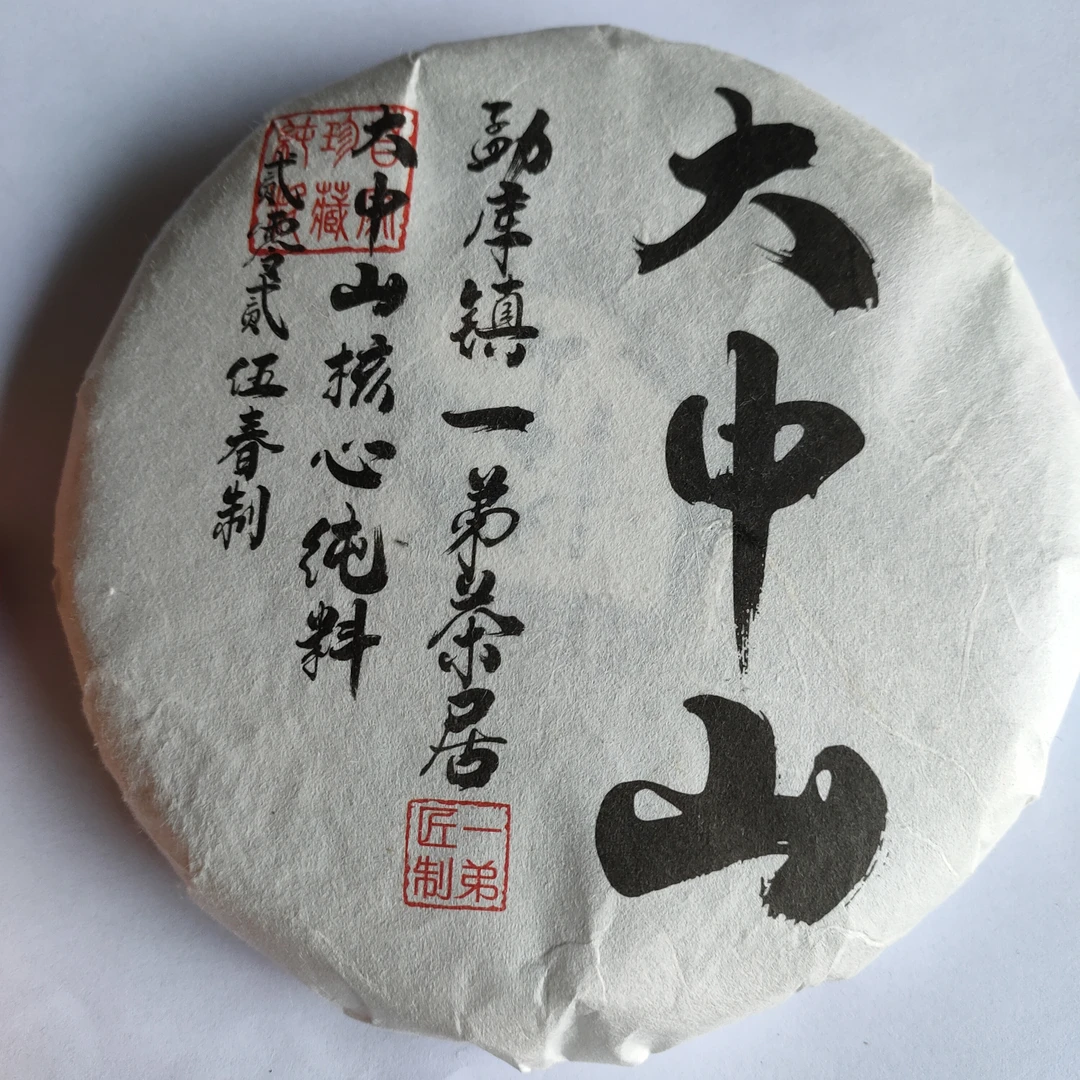 大中山
勐库镇一弟茶居
一弟
匠制
大中山核心纯料
贰零贰伍春制
珍藏